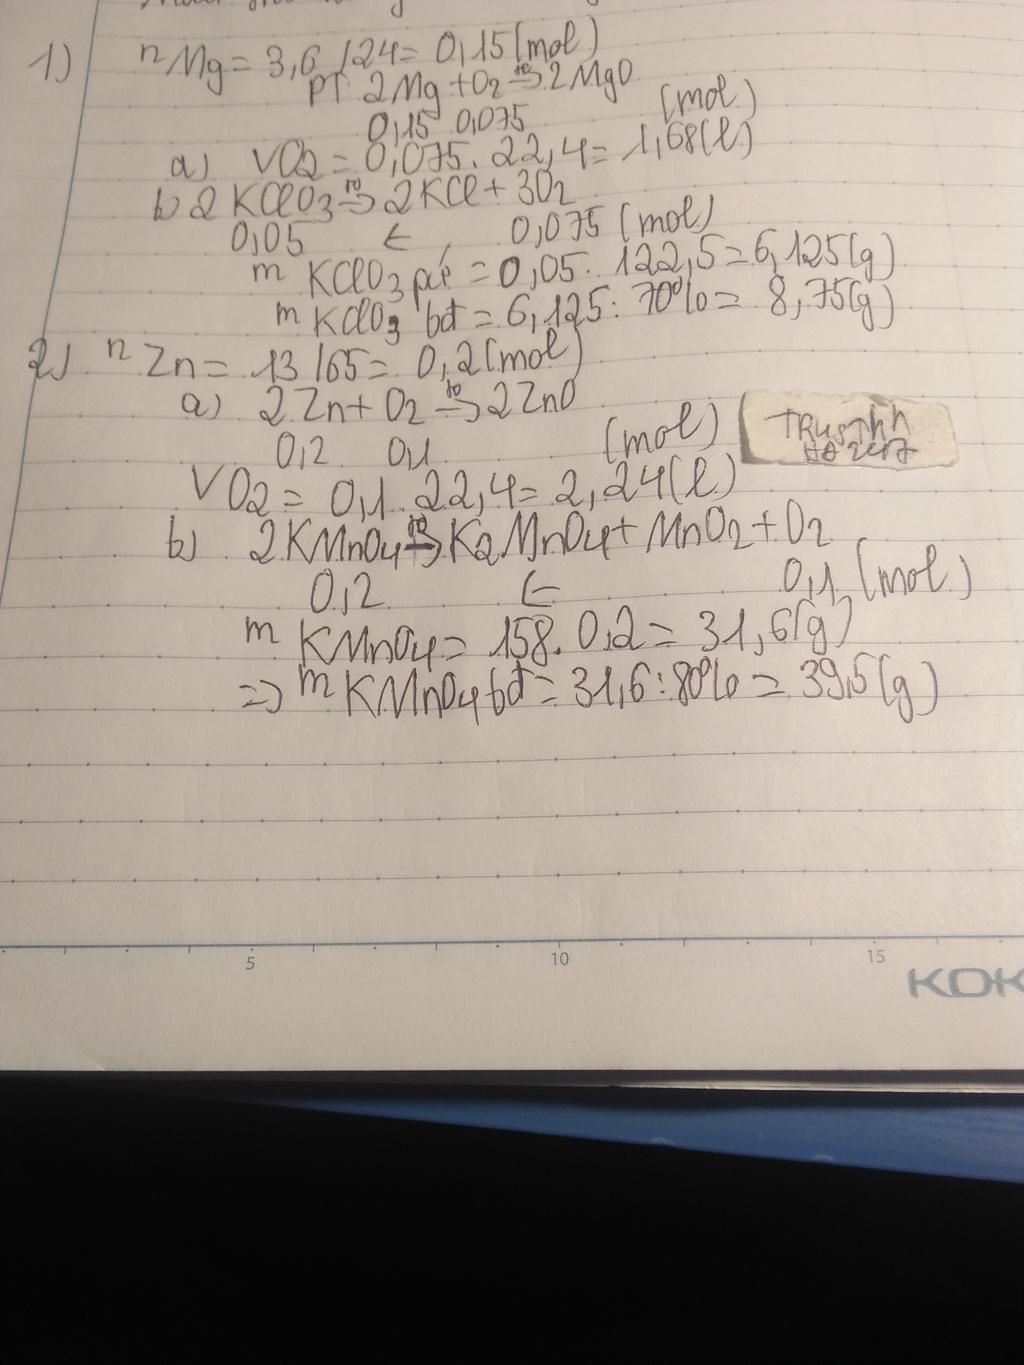 1) nMg = 3,6/24 = 0,15(mol)
PT 2Mg + O2 t°→ 2MgO
0,15 0,075 (mol)
a) VO2 = 0,075. 22,4 = 1,68(l)
b) 2KClO3 t°→ 2KCl + 3O2
0,05 ← 0,075 (mol)
m KClO3 pứ = 0,05. 122,5 = 6,125(g)
m KClO3 bđ = 6,125 : 70% = 8,75(g)
2) nZn = 13/65 = 0,2(mol)
a) 2Zn + O2 t°→ 2ZnO
0,2 0,1 (mol)
VO2 = 0,1. 22,4 = 2,24(l)
b) 2KMnO4 t°→ K2MnO4 + MnO2 + O2
0,2 ← 0,1 (mol)
m KMnO4 = 158. 0,2 = 31,6(g)
=> m KMnO4 bđ = 31,6 : 80% = 39,5(g)
5 10 15
KOK